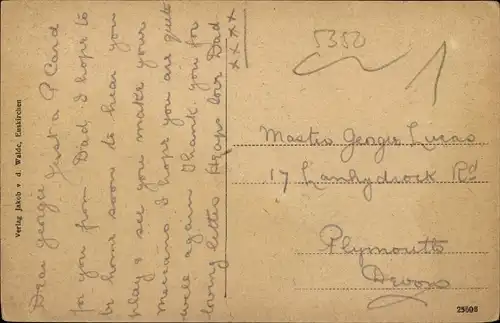 Dear georgie Just a P Card
for you from Dad I hope to
be home soon to hear you
play & see you make your
meccano I hope you are quite
well again Thank you for
loving letter Heaps love Dad
xxxx
Verlag Jakob v. d. Walde, Euskirchen
5350
1
Master Georgie Lucas
17 Lanhydrock Rd
Plymouth
Devon
25698